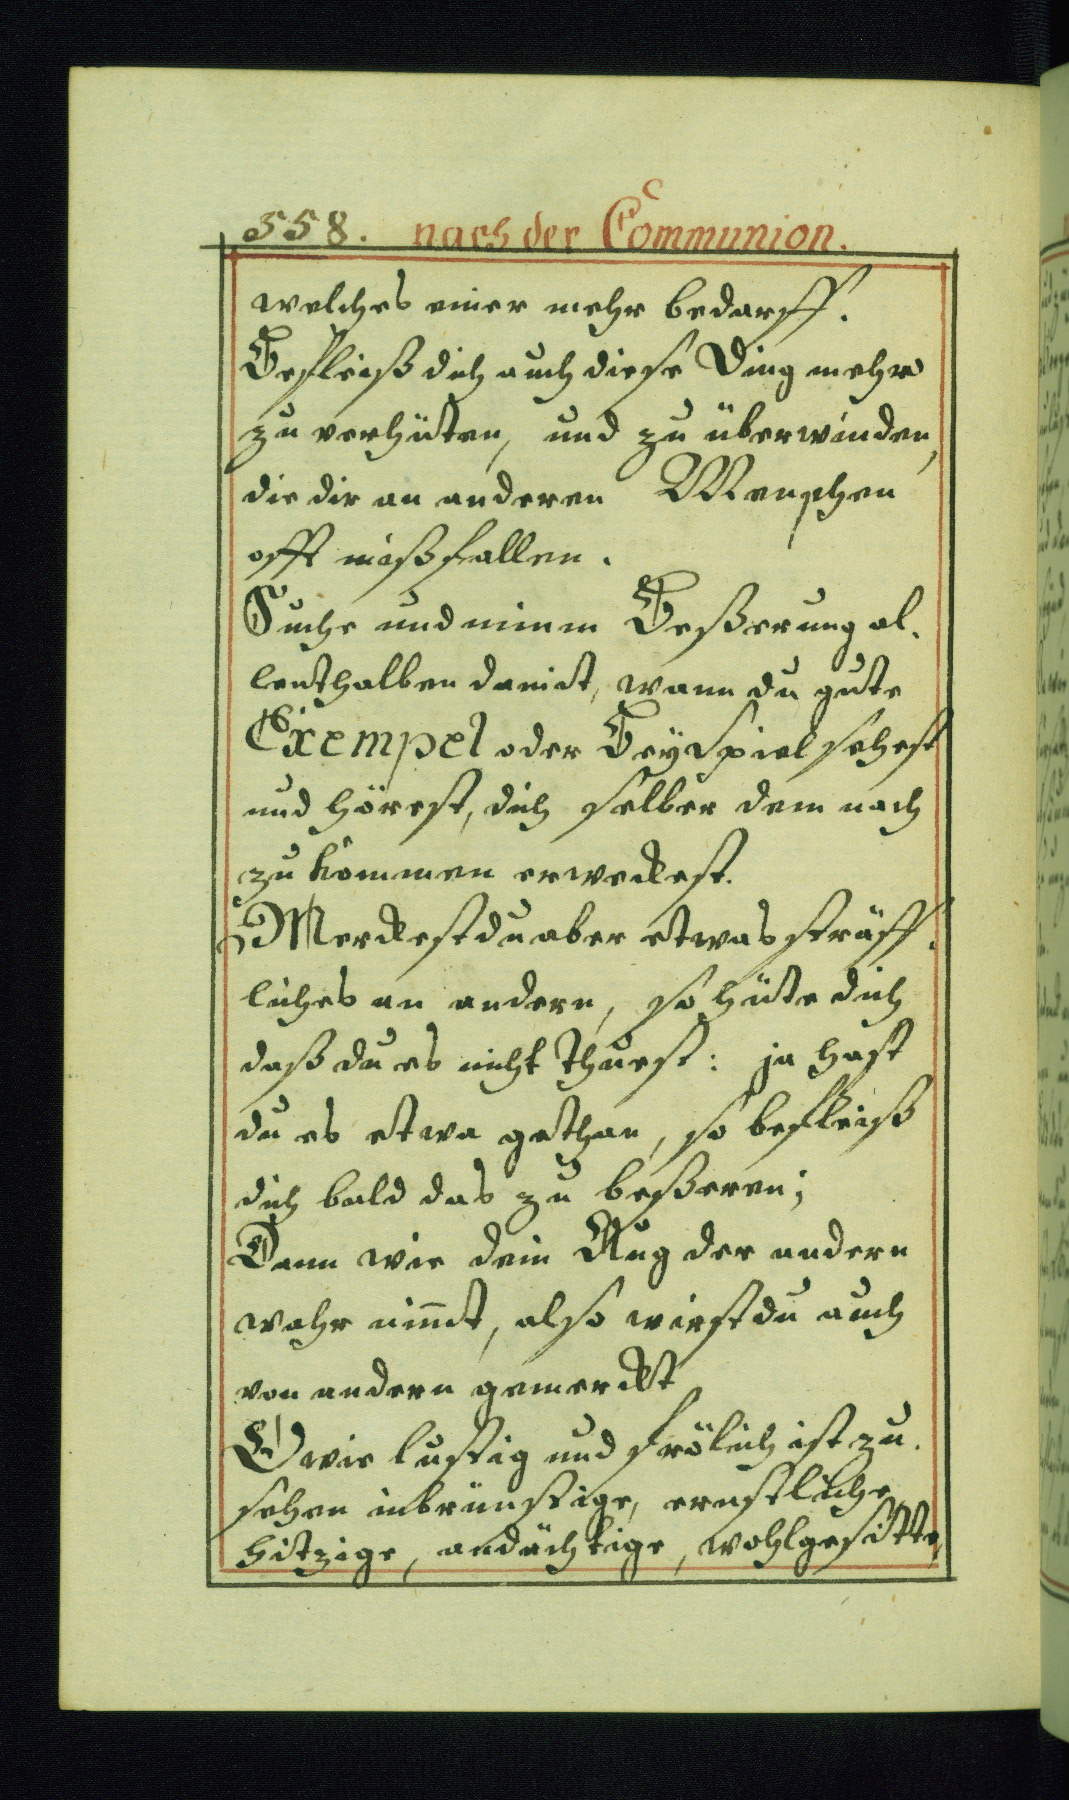 558. nach der Communion.
welches einer mehr bedarff.
Befleiß dich auch diese Ding mehr
zu verhüten, und zu überwinden,
die dir an anderen Menschen
offt mißfallen.
Suche und nimm Beßerung al-
lenthalben damit, wann du gute
Exempel oder Beyspiel sehest
und hörest, dich selber dem nach
zu kommen erweckest.
Merckest du aber etwas sträff-
liches an andern, so hüte dich
daß du es nicht thuest: ja hast
du es etwa gethan, so befleiß
dich bald das zu beßeren;
Dann wie dein Aug der andern
wahr nim̄t, also wirst du auch
von andern gemerckt
O wie lustig und frölich ist zu
sehen inbrünstige, ernstliche
hitzige, andächtige, wohlgesitte,